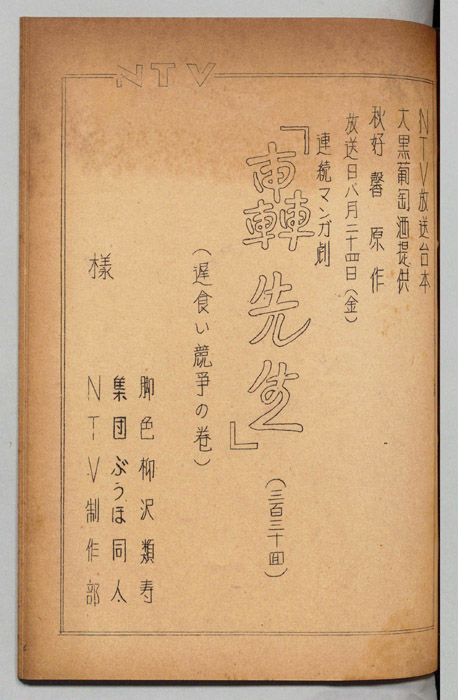 NTV
NTV放送台本
大黒葡萄酒提供
秋好馨原作
放送日八月二十四日(金)
連続マンガ劇
「轟先生」
(三百三十回)
(遅食い競争の巻)
脚色柳沢類寿
集団ぶうほ同人
NTV制作部
様